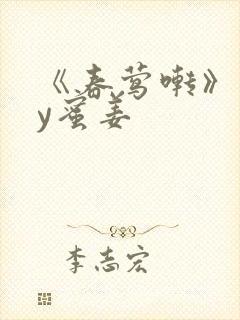 《春莺啭》
y蜜姜
李志宏